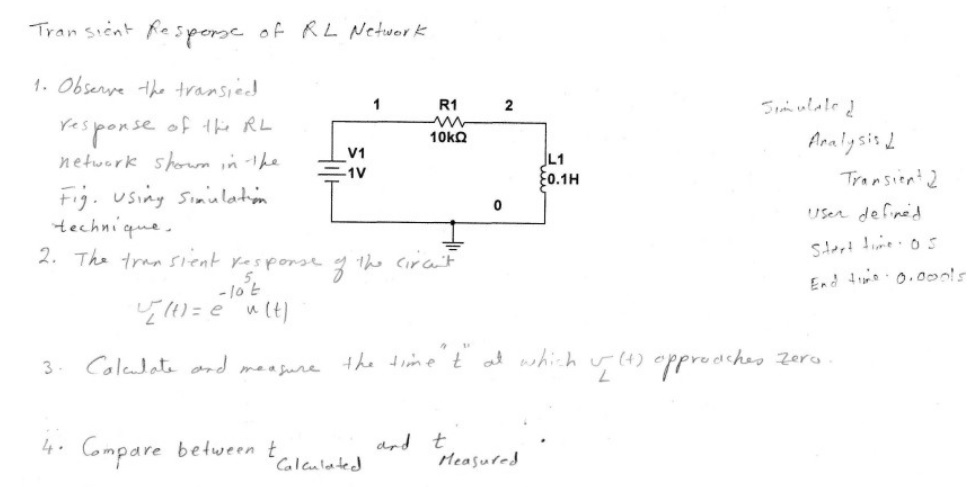 Transient Response of RL Network
1. Observe the transied
response of the RL
network shown in the
Fig. using Simulation
technique.
1
R1
2
10kΩ
V1
1V
L1
0.1H
0
Simulated
Analysis
Transient
User defined
Start time. 0 S
End time. 0.0001s
2. The transient response of the circuit
v_L(t) = e^{-10^5 t} u(t)
3. Calculate and measure the time "t" at which v_L(t) approaches zero.
4. Compare between t_Calculated and t_Measured.